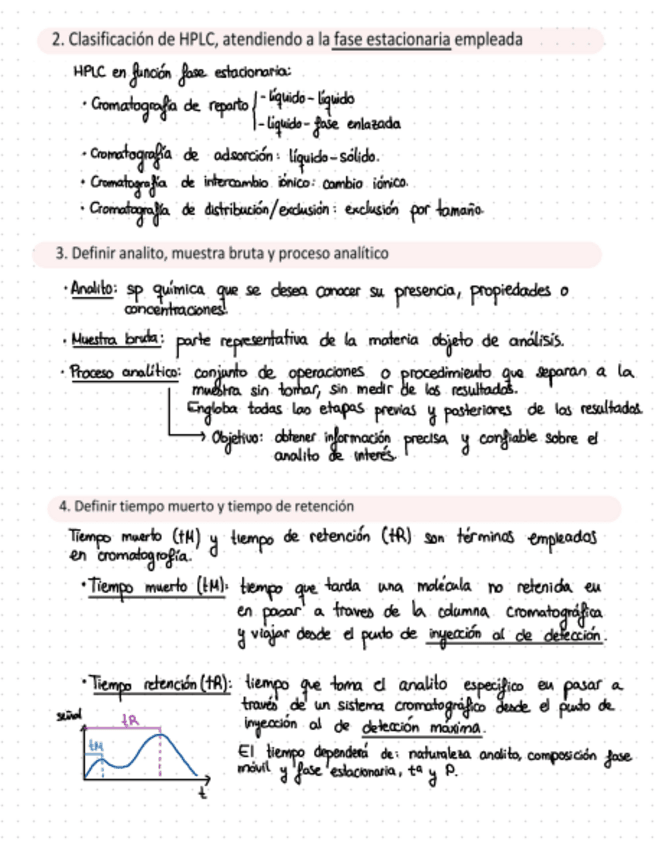 2. Clasificación de HPLC, atendiendo a la fase estacionaria empleada
HPLC en función fase estacionaria:
· Cromatografía de reparto
- líquido - líquido
- líquido - fase enlazada
· Cromatografía de adsorción: líquido-sólido.
· Cromatografía de intercambio iónico: cambio iónico.
· Cromatografía de distribución/exclusión: exclusión por tamaño.
3. Definir analito, muestra bruta y proceso analítico
· Analito: sp química que se desea conocer su presencia, propiedades o
concentraciones.
· Muestra bruta: parte representativa de la materia objeto de análisis.
· Proceso analítico: conjunto de operaciones o procedimiento que separan a la
muestra sin tomar, sin medir de los resultados.
Engloba todas las etapas previas y posteriores de los resultados
Objetivo: obtener información precisa y confiable sobre el
analito de interés.
4. Definir tiempo muerto y tiempo de retención
Tiempo muerto (tM) y tiempo de retención (tR) son términos empleados
en cromatografía.
· Tiempo muerto (tM): tiempo que tarda una molécula no retenida en
en pasar a traves de la columna cromatográfica
y viajar desde el punto de inyección al de detección.
· Tiempo retención (tR): tiempo que toma el analito especifico en pasar a
través de un sistema cromatográfico desde el punto de
inyección al de detección máxima.
El tiempo dependerá de: naturaleza analito, composición fase
móvil y fase estacionaria, tª y P.
señal
tR
tM
t